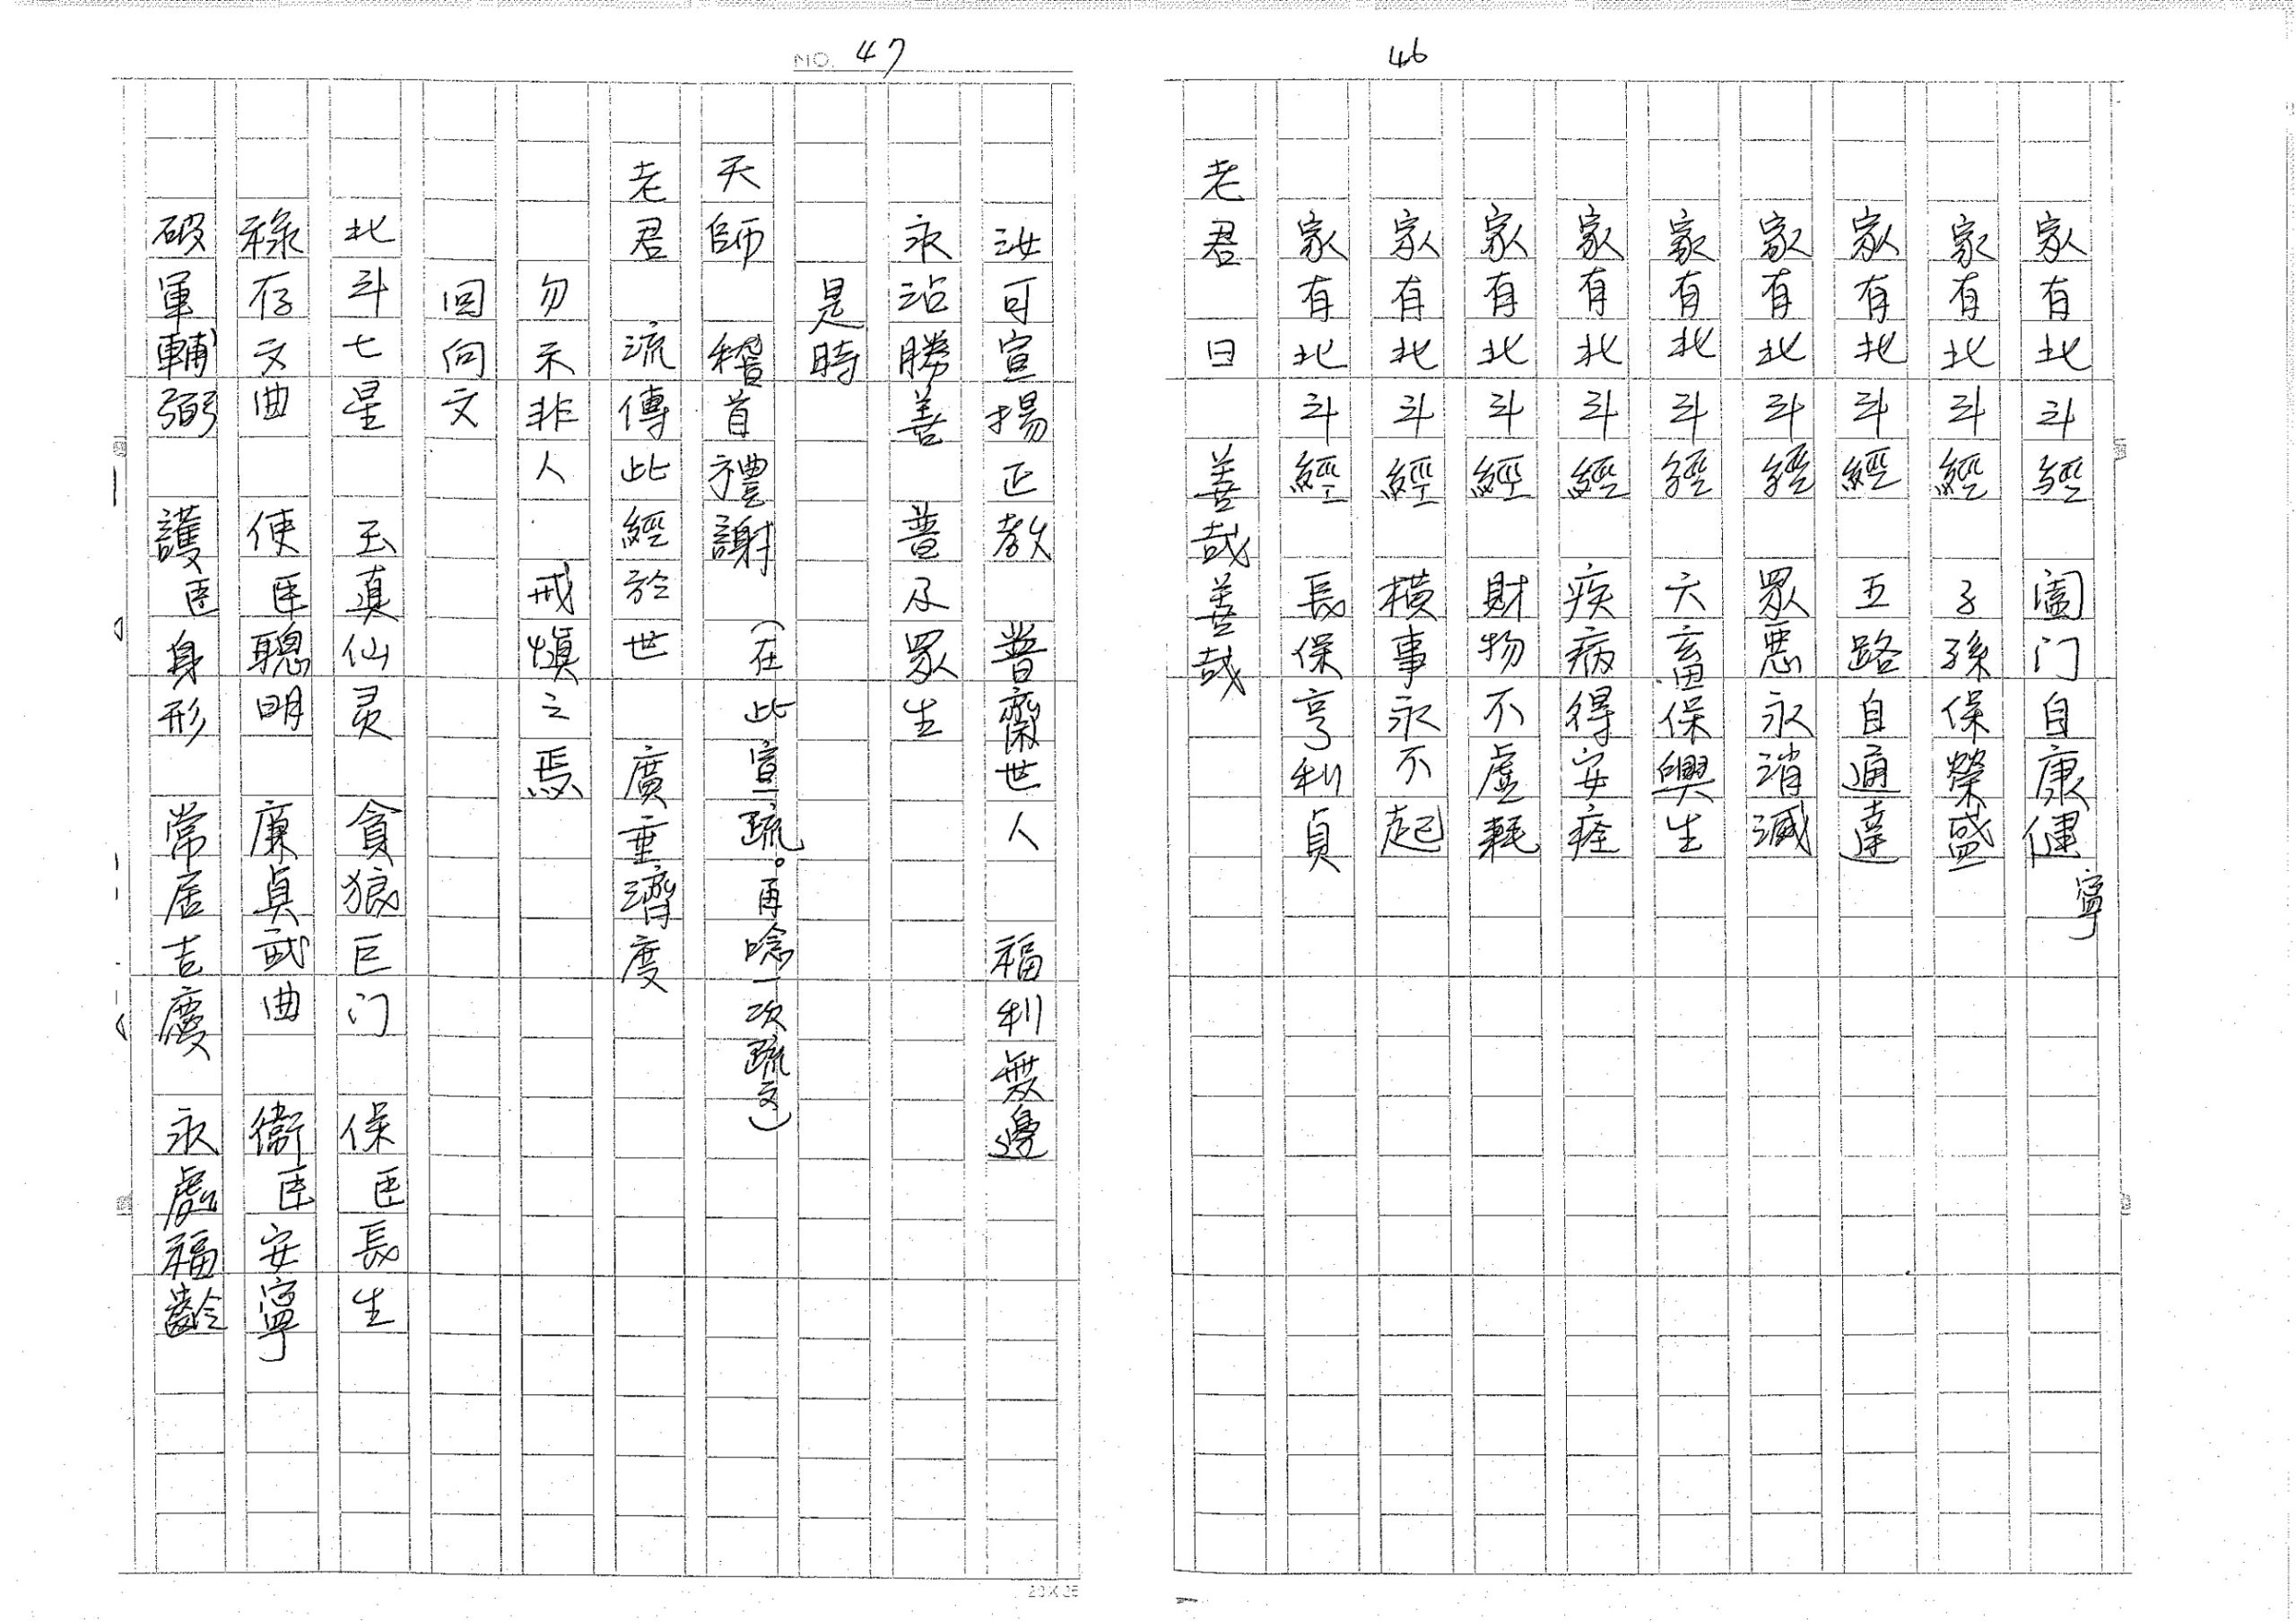 46
家有北斗經　闔门自康健寧
家有北斗經　子孫保榮盛
家有北斗經　五路自通達
家有北斗經　眾惡永消滅
家有北斗經　六畜保興生
家有北斗經　疾病得安痊
家有北斗經　財物不虛耗
家有北斗經　橫事永不起
家有北斗經　長保亨利貞
老君　曰　善哉善哉
NO. 47
汝可宣揚正教　普齋世人　福利無邊
永沾勝善　普及眾生
是時
天師　稽首禮謝　（在此宣疏。再唸一次疏文）
老君　流傳此經於世　廣重濟度
勿示非人　戒慎之焉
回向文
北斗七星　玉真仙灵　貪狼巨门　保臣長生
祿存文曲　使臣聰明　廉貞武曲　衛臣安寧
破軍輔弼　護臣身形　常居吉慶　永處福齡